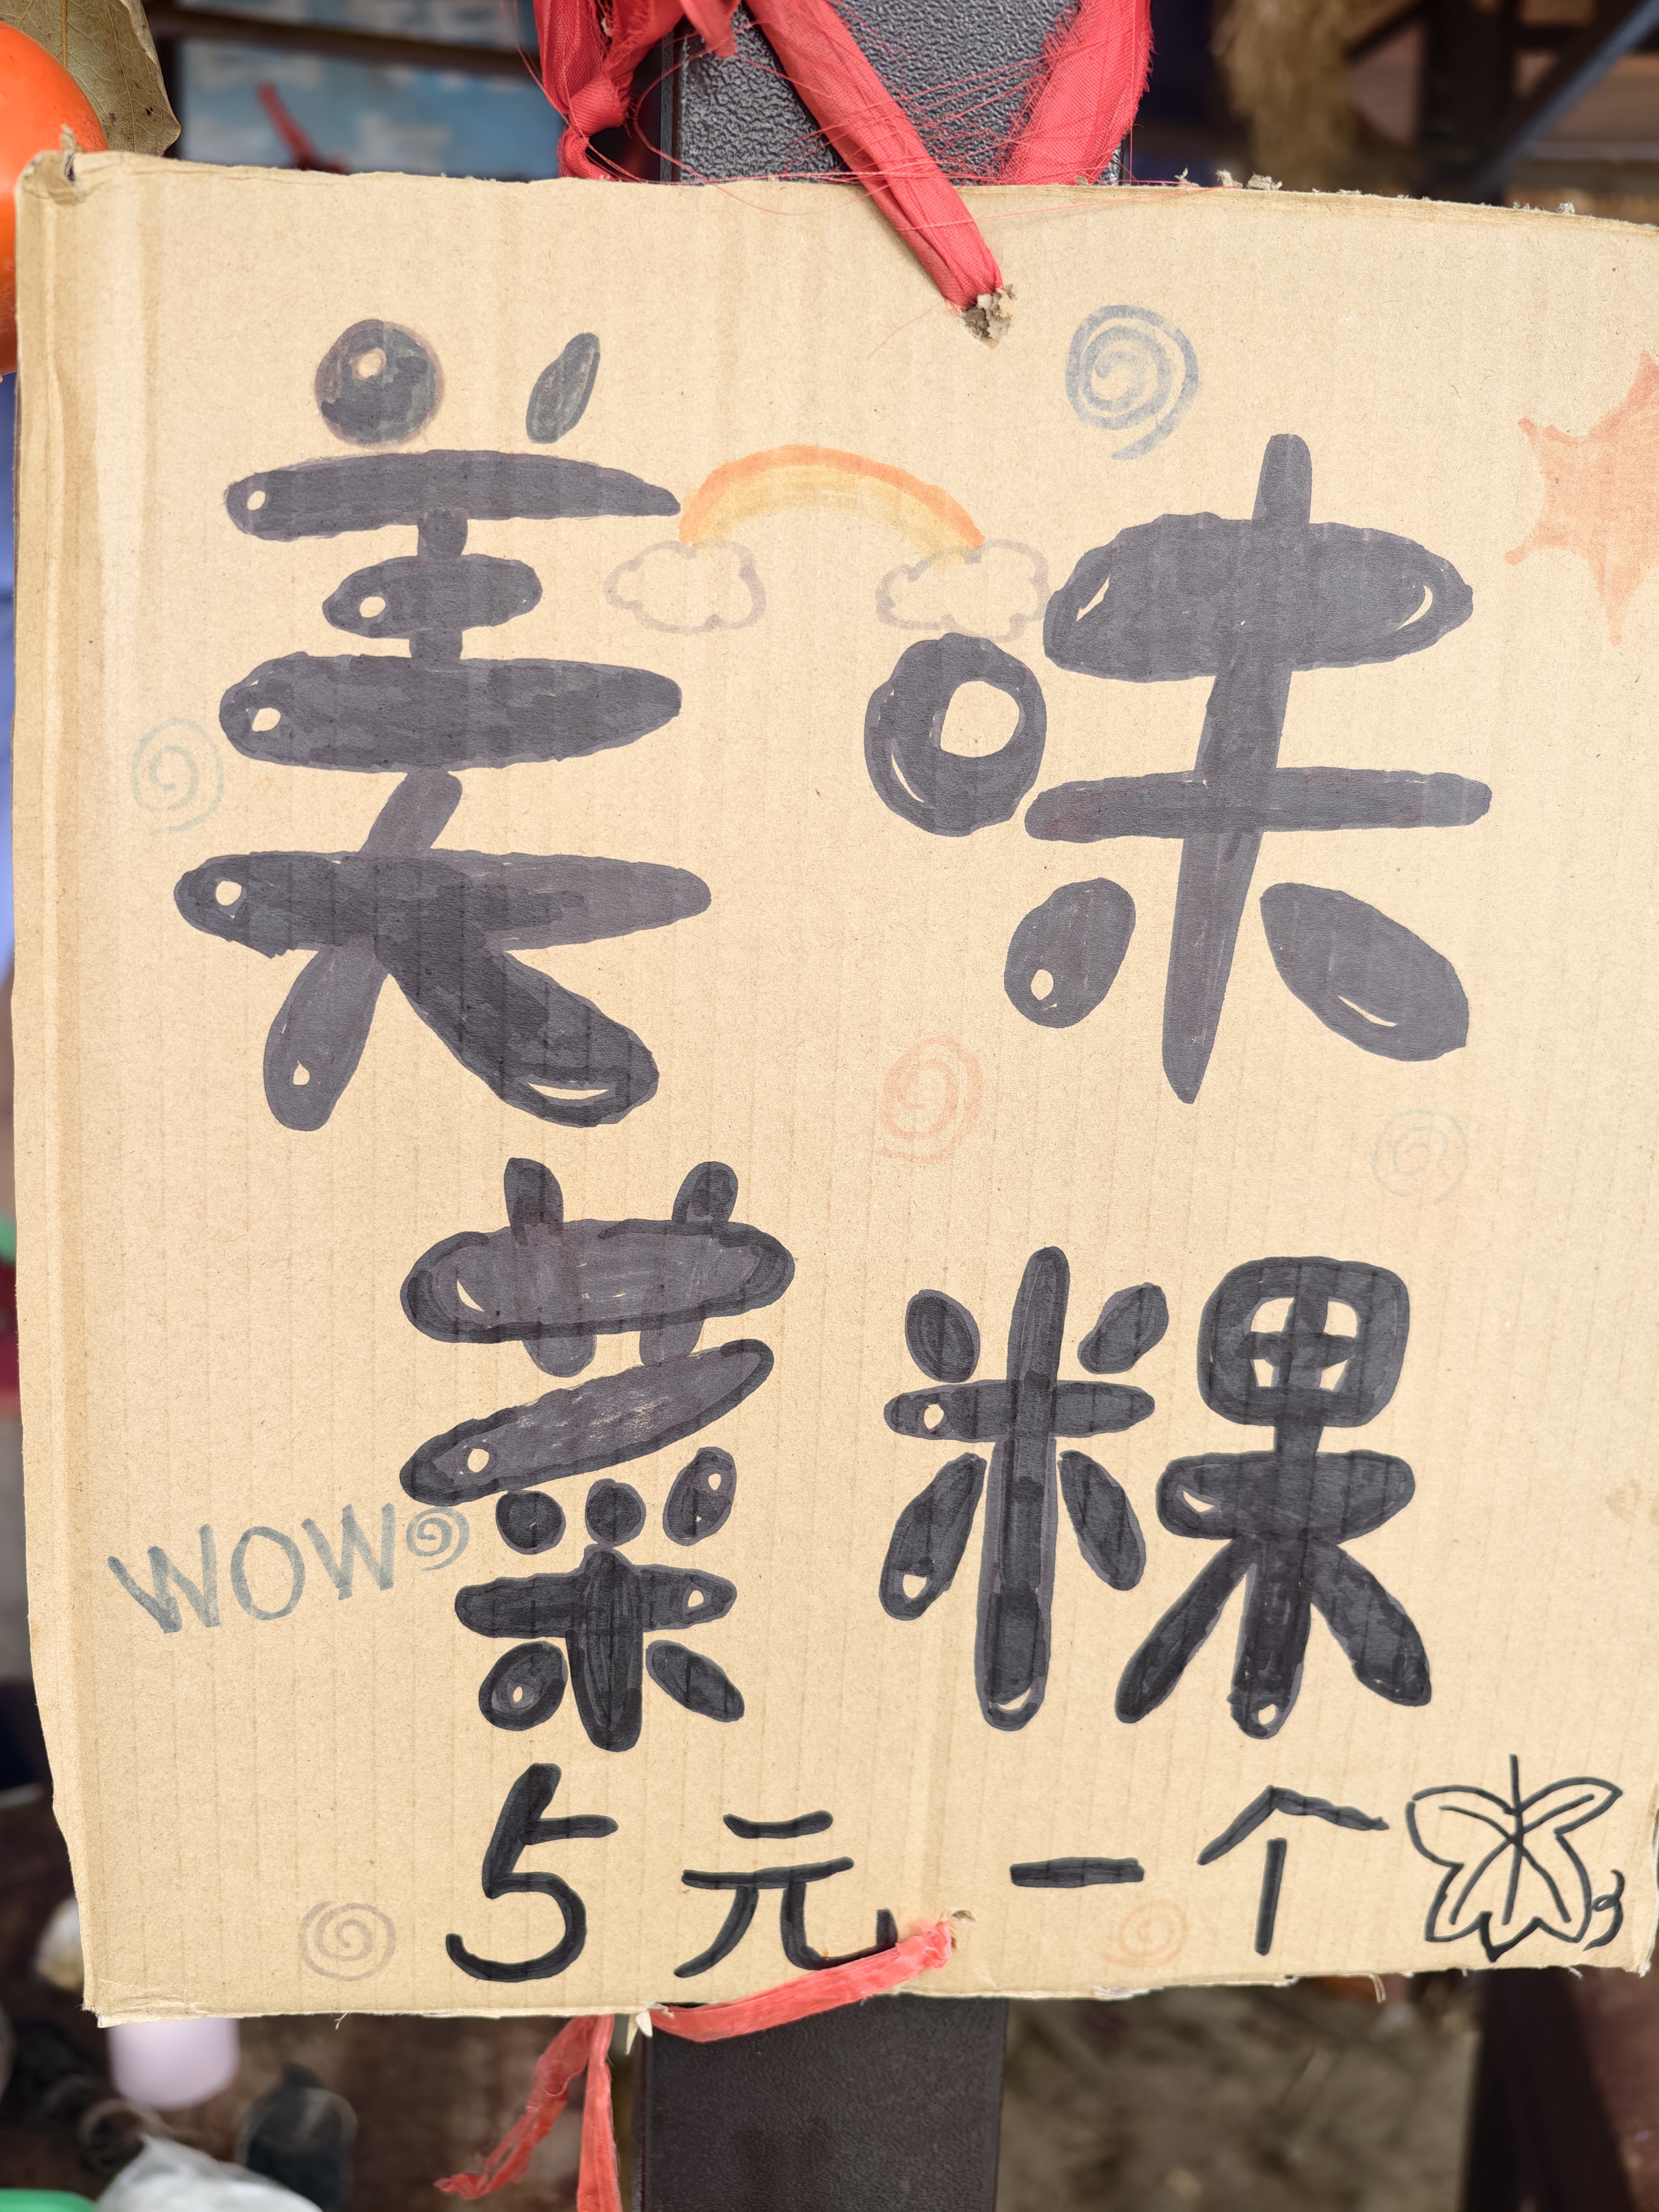 美味
菜粿
WOW
5元一个